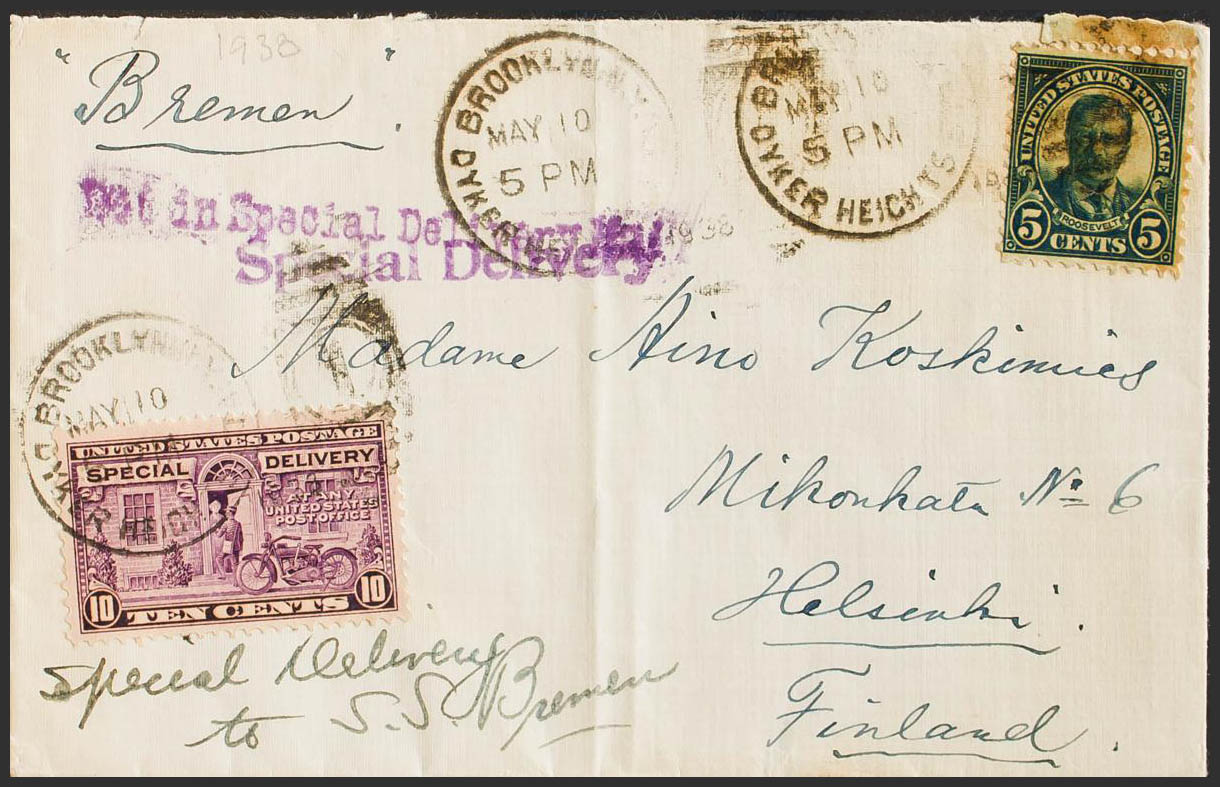 1938
"Bremen".
BROOKLYN, N.Y.
MAY 10
5 PM
DYKER
MAY 10
5 PM
DYKER HEIGHTS
UNITED STATES POSTAGE
ROOSEVELT
5 CENTS 5
in Special Delivery
1938
Special Delivery
Madame Aino Koskimies
Mikonkatu No 6
Helsinki.
Finland.
BROOKLYN
MAY 10
UNITED STATES POSTAGE
SPECIAL DELIVERY
AT ANY
UNITED STATES
POST OFFICE
10 TEN CENTS 10
Special Delivery
to S.S. Bremen